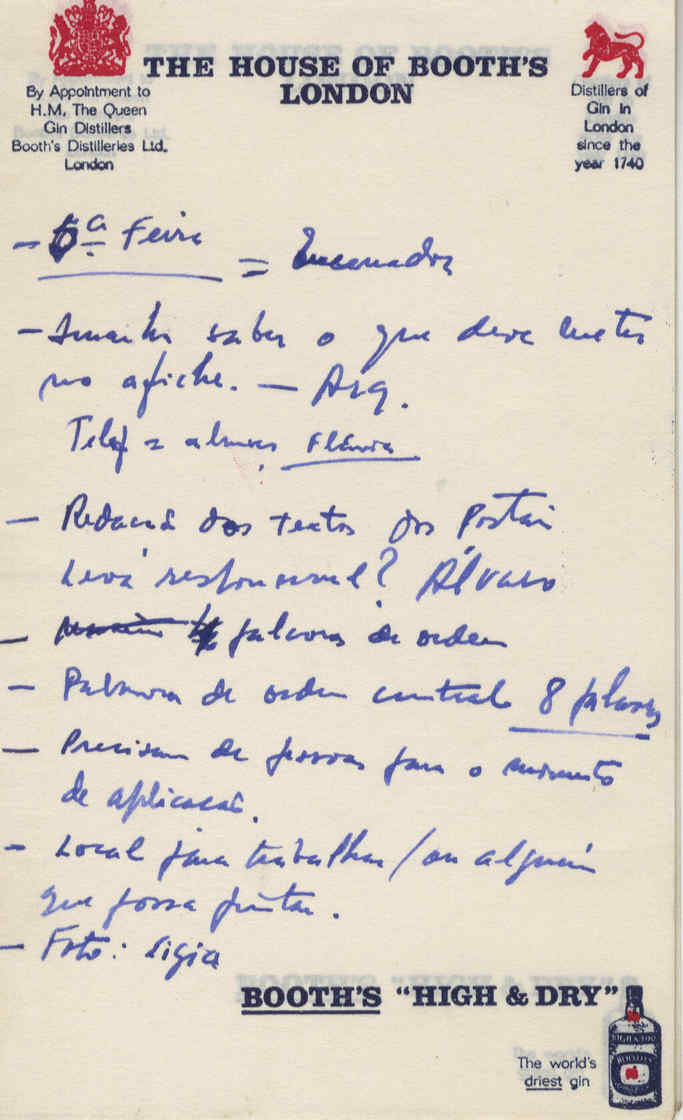 THE HOUSE OF BOOTH'S
LONDON
By Appointment to
H.M. The Queen
Gin Distillers
Booth's Distilleries Ltd.
London
Distillers of
Gin in
London
since the
year 1740
- 6ª Feira =
- saber o que deve meter
no afiche. - Arq.
Telef =
- Redacção dos textos dos
responsável? Álvaro
- 4 palavras de ordem
- Palavra de ordem central 8 palavras
- Precisam de pessoas para o momento
de aplicação.
- Local para trabalhar / ou alguém
que possa pintar.
- Foto: Ligia
BOOTH'S "HIGH & DRY"
The world's
driest gin
HIGH & DRY
BOOTH'S